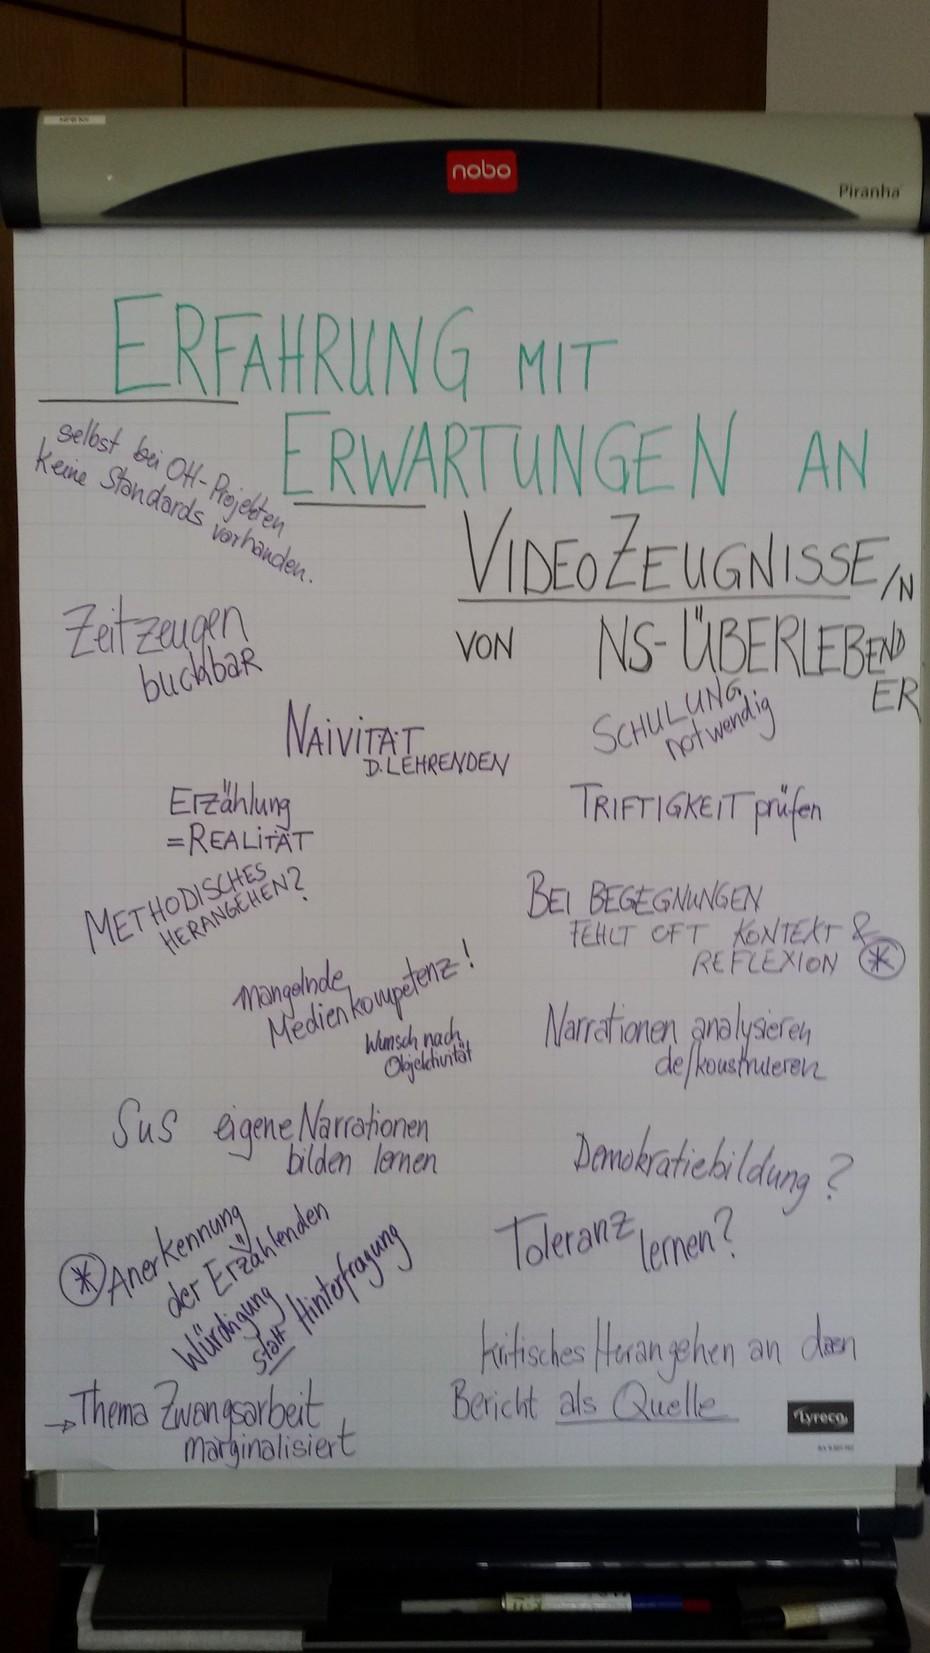 nobo
Piranha
ERFAHRUNG MIT
ERWARTUNGEN AN
VIDEOZEUGNISSE/N
VON NS-ÜBERLEBEND
ER
selbst bei OH-Projekten
keine Standards vorhanden.
Zeitzeugen
buchbar
NAIVITÄT
D. LEHRENDEN
SCHULUNG
notwendig
Erzählung
=REALITÄT
TRIFTIGKEIT prüfen
METHODISCHES
HERANGEHEN?
BEI BEGEGNUNGEN
FEHLT OFT KONTEXT &
REFLEXION *
Mangelnde
Medienkompetenz!
Wunsch nach
Objektivität
Narrationen analysieren
de/konstruieren
SuS eigene Narrationen
bilden lernen
Demokratiebildung?
* Anerkennung
der Erzählenden
Würdigung
statt Hinterfragung
Toleranz
lernen?
kritisches Herangehen an den
Bericht als Quelle
→Thema Zwangsarbeit
marginalisiert
Lyreco